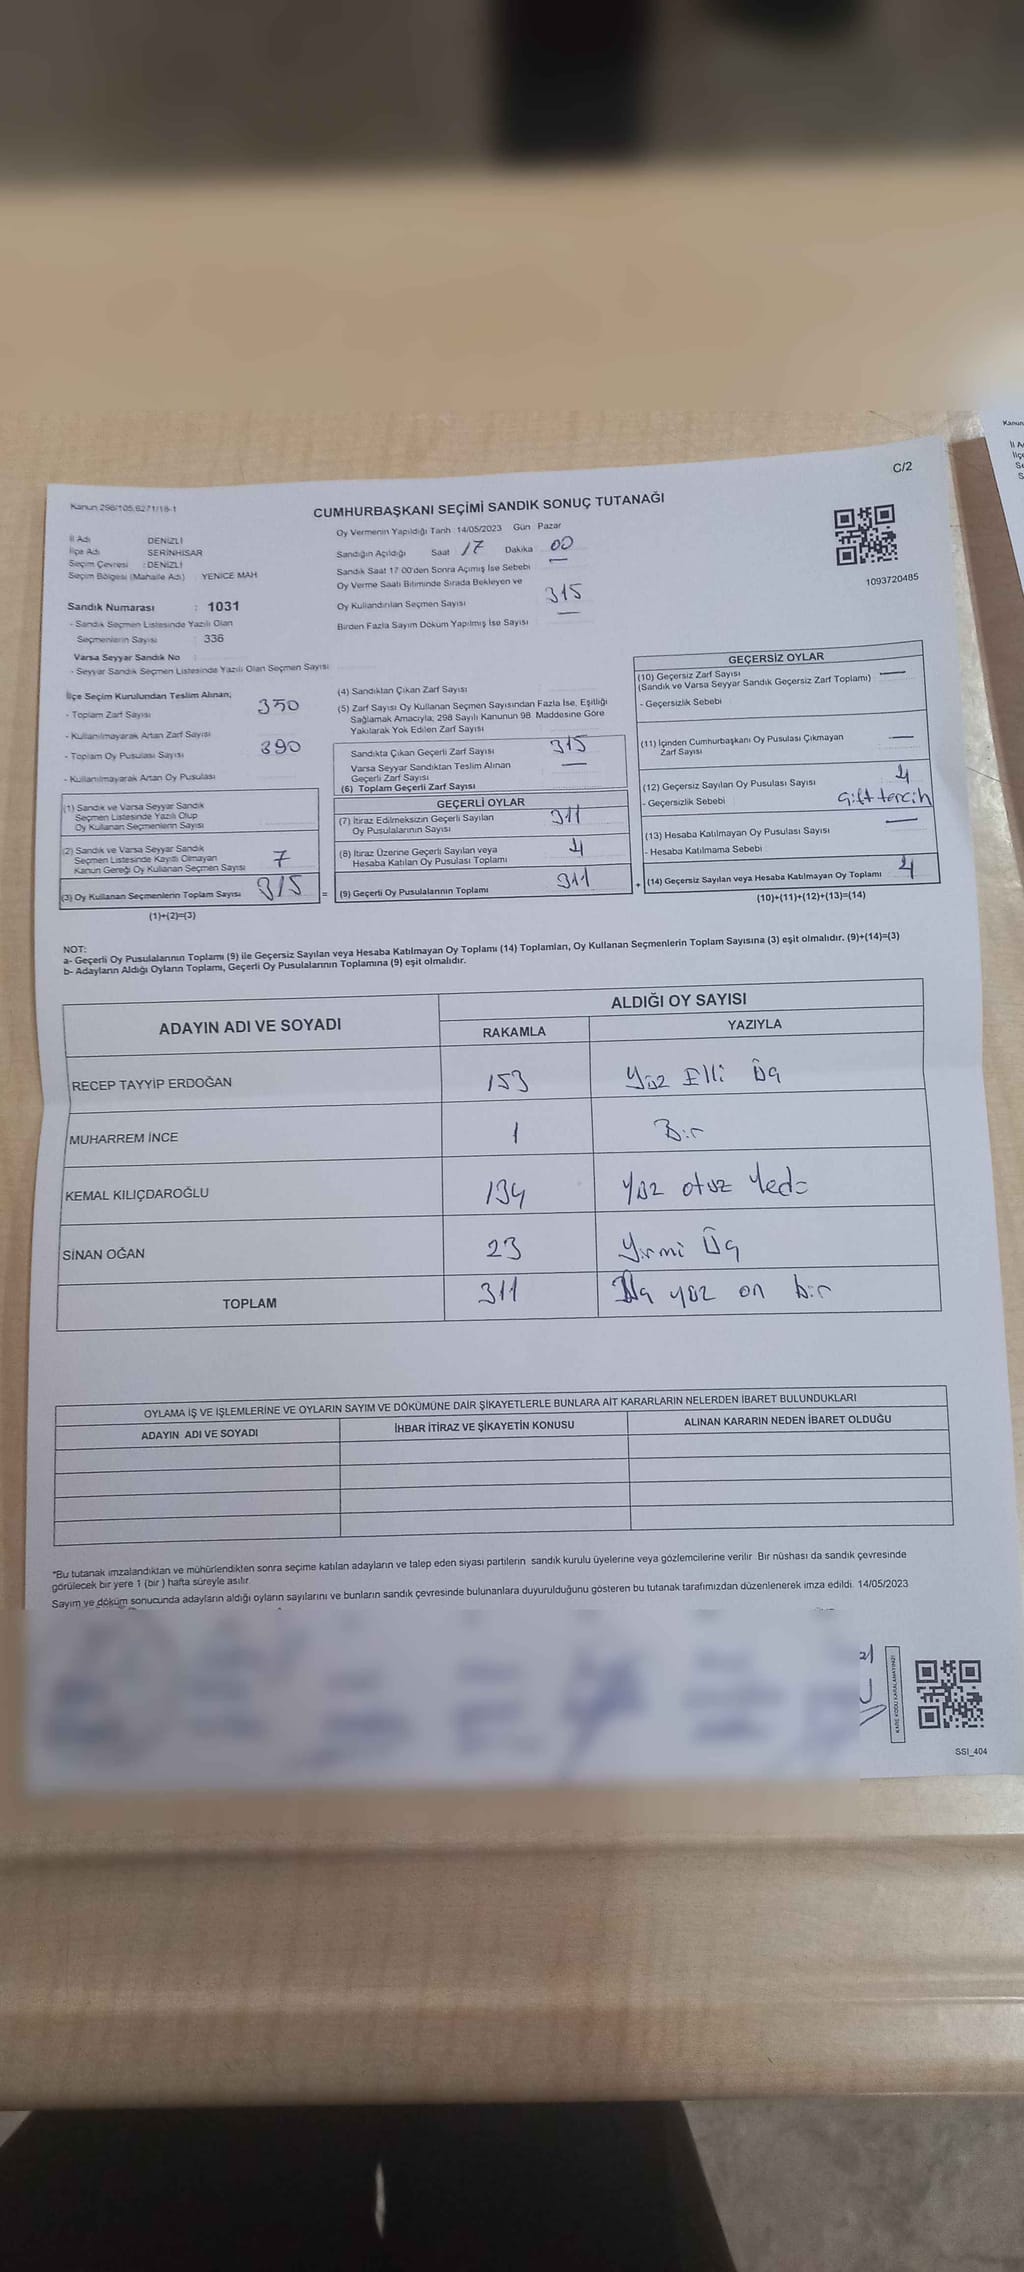 C/2
Kanun 298/105,6271/18-1
CUMHURBAŞKANI SEÇİMİ SANDIK SONUÇ TUTANAĞI
İl Adı DENİZLİ
İlçe Adı SERİNHİSAR
Seçim Çevresi : DENİZLİ
Seçim Bölgesi (Mahalle Adı) YENİCE MAH
Sandık Numarası : 1031
- Sandık Seçmen Listesinde Yazılı Olan
Seçmenlerin Sayısı 336
Varsa Seyyar Sandık No
- Seyyar Sandık Seçmen Listesinde Yazılı Olan Seçmen Sayısı
Oy Vermenin Yapıldığı Tarih 14/05/2023 Gün Pazar
Sandığın Açıldığı Saat 17 Dakika 00
Sandık Saat 17 00'den Sonra Açımış İse Sebebi —
Oy Verme Saati Bitiminde Sırada Bekleyen ve
Oy Kullandırılan Seçmen Sayısı 315
Birden Fazla Sayım Döküm Yapılmış İse Sayısı —
1093720485
İlçe Seçim Kurulundan Teslim Alınan;
- Toplam Zarf Sayısı 350
- Kullanılmayarak Artan Zarf Sayısı
- Toplam Oy Pusulası Sayısı 390
- Kullanılmayarak Artan Oy Pusulası
(1) Sandık ve Varsa Seyyar Sandık
Seçmen Listesinde Yazılı Olup
Oy Kullanan Seçmenlerin Sayısı
(2) Sandık ve Varsa Seyyar Sandık
Seçmen Listesinde Kayıtlı Olmayan
Kanun Gereği Oy Kullanan Seçmen Sayısı 7
(3) Oy Kullanan Seçmenlerin Toplam Sayısı 315
(1)+(2)=(3)
(4) Sandıktan Çıkan Zarf Sayısı
(5) Zarf Sayısı Oy Kullanan Seçmen Sayısından Fazla İse, Eşitliği
Sağlamak Amacıyla; 298 Sayılı Kanunun 98. Maddesine Göre
Yakılarak Yok Edilen Zarf Sayısı
Sandıkta Çıkan Geçerli Zarf Sayısı 315
Varsa Seyyar Sandıktan Teslim Alınan
Geçerli Zarf Sayısı —
(6) Toplam Geçerli Zarf Sayısı
GEÇERLİ OYLAR
(7) İtiraz Edilmeksizin Geçerli Sayılan
Oy Pusulalarının Sayısı 311
(8) İtiraz Üzerine Geçerli Sayılan veya
Hesaba Katılan Oy Pusulası Toplamı 4
= (9) Geçerli Oy Pusulalarının Toplamı 311
GEÇERSİZ OYLAR
(10) Geçersiz Zarf Sayısı
(Sandık ve Varsa Seyyar Sandık Geçersiz Zarf Toplamı) —
- Geçersizlik Sebebi
(11) İçinden Cumhurbaşkanı Oy Pusulası Çıkmayan
Zarf Sayısı —
(12) Geçersiz Sayılan Oy Pusulası Sayısı 4
- Geçersizlik Sebebi Çift tercih
(13) Hesaba Katılmayan Oy Pusulası Sayısı —
- Hesaba Katılmama Sebebi
+ (14) Geçersiz Sayılan veya Hesaba Katılmayan Oy Toplamı 4
(10)+(11)+(12)+(13)=(14)
NOT:
a- Geçerli Oy Pusulalarının Toplamı (9) ile Geçersiz Sayılan veya Hesaba Katılmayan Oy Toplamı (14) Toplamları, Oy Kullanan Seçmenlerin Toplam Sayısına (3) eşit olmalıdır. (9)+(14)=(3)
b- Adayların Aldığı Oyların Toplamı, Geçerli Oy Pusulalarının Toplamına (9) eşit olmalıdır.
ADAYIN ADI VE SOYADI
ALDIĞI OY SAYISI
RAKAMLA YAZIYLA
RECEP TAYYİP ERDOĞAN 153 Yüz Elli Üç
MUHARREM İNCE 1 Bir
KEMAL KILIÇDAROĞLU 134 Yüz otuz Yedi
SİNAN OĞAN 23 Yirmi Üç
TOPLAM 311 Üç yüz on bir
OYLAMA İŞ VE İŞLEMLERİNE VE OYLARIN SAYIM VE DÖKÜMÜNE DAİR ŞİKAYETLERLE BUNLARA AİT KARARLARIN NELERDEN İBARET BULUNDUKLARI
ADAYIN ADI VE SOYADI İHBAR İTİRAZ VE ŞİKAYETİN KONUSU ALINAN KARARIN NEDEN İBARET OLDUĞU
*Bu tutanak imzalandıktan ve mühürlendikten sonra seçime katılan adayların ve talep eden siyasi partilerin sandık kurulu üyelerine veya gözlemcilerine verilir. Bir nüshası da sandık çevresinde
görülecek bir yere 1 (bir) hafta süreyle asılır.
Sayım ve döküm sonucunda adayların aldığı oyların sayılarını ve bunların sandık çevresinde bulunanlara duyurulduğunu gösteren bu tutanak tarafımızdan düzenlenerek imza edildi. 14/05/2023
KARE KODU KARALAMAYINIZ!
SSI_404